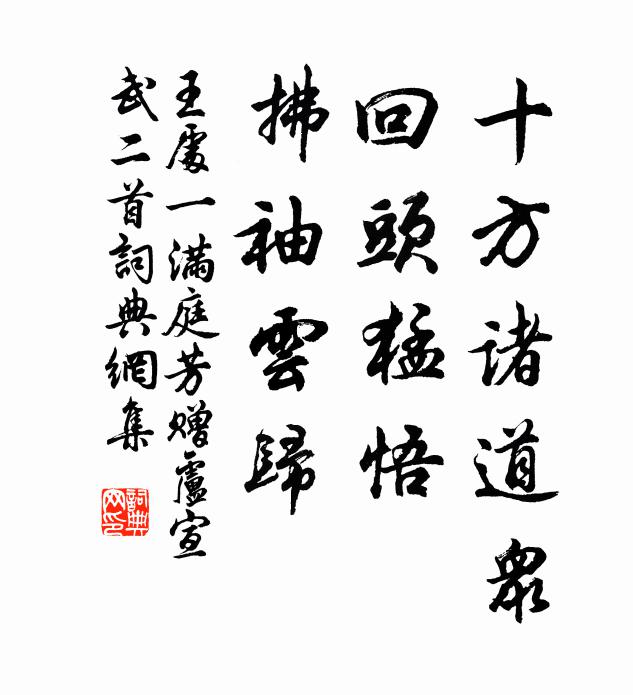 十方諸道眾
回頭猛悟
拂袖雲歸
王處一滿庭芳贈盧宣
武二首詞典網集
詞典
网印